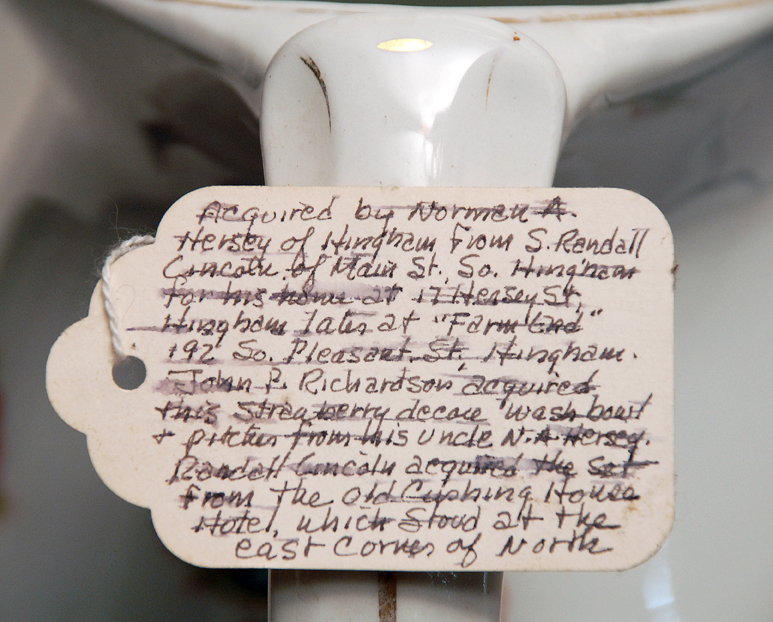 Acquired by Norman A.
Hersey of Hingham from S. Randall
Lincoln of Main St., So. Hingham
for his home at 17 Hersey St,
Hingham later at "Farm End"
192 So. Pleasant St, Hingham.
John P. Richardson acquired
this Strawberry decore wash bowl
+ pitcher from his uncle N. A. Hersey.
Randall Lincoln acquired the Set
from the Old Cushing House
Hotel, which Stood at the
east corner of North